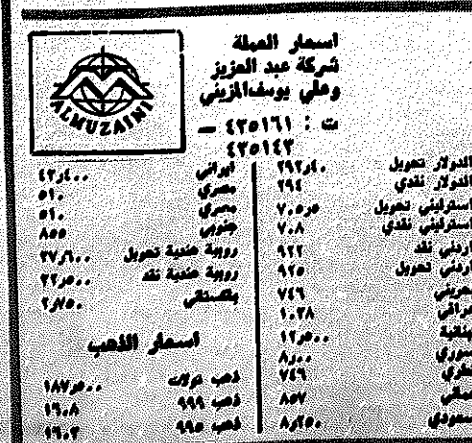 اسعار العملة
شركة عبد العزيز
وعلي يوسف المزيني
ت : ٤٣٥١٦١ —
٤٣٥١٤٣
ALMUZAINI
الدولار تحويل ٢٩٢٫٤٠
الدولار نقدي ٢٩٤
استرليني تحويل ٧٠٥٫٥
استرليني نقدي ٧٠٨
اردني نقد ٩٢٢
اردني تحويل ٩٢٥
بحريني ٧٤٦
عراقي ١٠٣٨
لبنانية
سوري
قطري ٧٤٦
عماني ٨٥٧
سعودي ٨٫٢٥٠
ايراني ٤٢٫٤٠٠
مصري ٥١٠
مصري ٥١٠
جنوبي ٨٥٥
روبية هندية تحويل ٣٧٫٦٠٠
روبية هندية نقد
بلكستاني ٢٫٧٥٠
اسعار الذهب
ذهب تولات
ذهب ٩٩٩ ١٦٠٨
ذهب ٩٩٥ ١٦٠٢